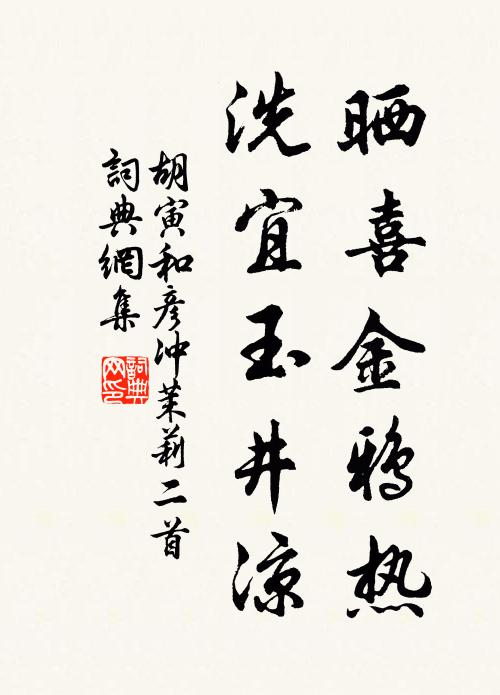 晒喜金鸦热
洗宜玉井凉
胡寅和彦冲茉莉二首
詞典網集
詞典
网印